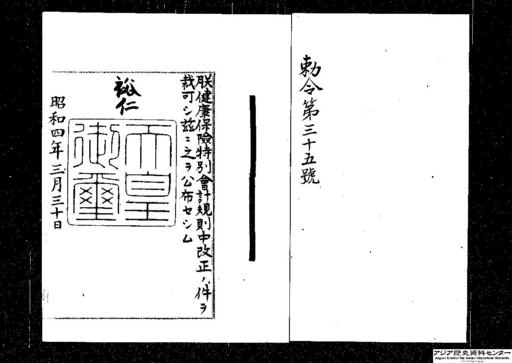 朕健康保險特別會計規則中改正ノ件ヲ
裁可シ茲ニ之ヲ公布セシム
裕仁
天皇御璽
昭和四年三月三十日
勅令第三十五號
アジア歴史資料センター
Japan Center for Asian Historical Records